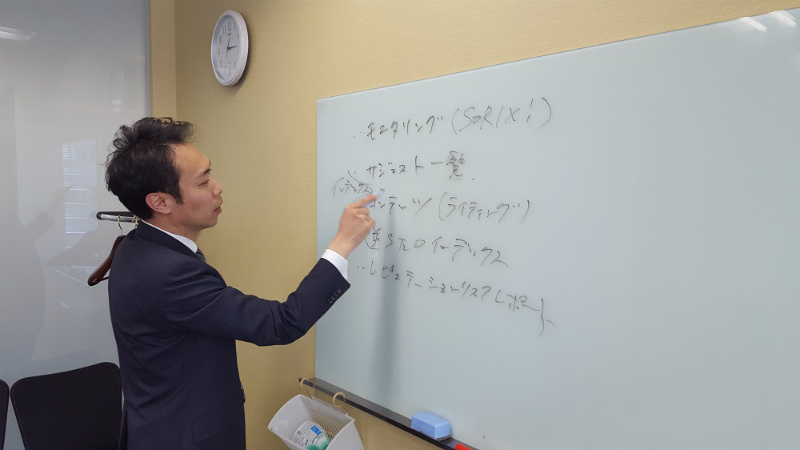 モニタリング (SORIXi)
サジェスト一覧
インデックス
コンテンツ (ライティング)
逆SEOインデックス
レピュテーションリスクレポート